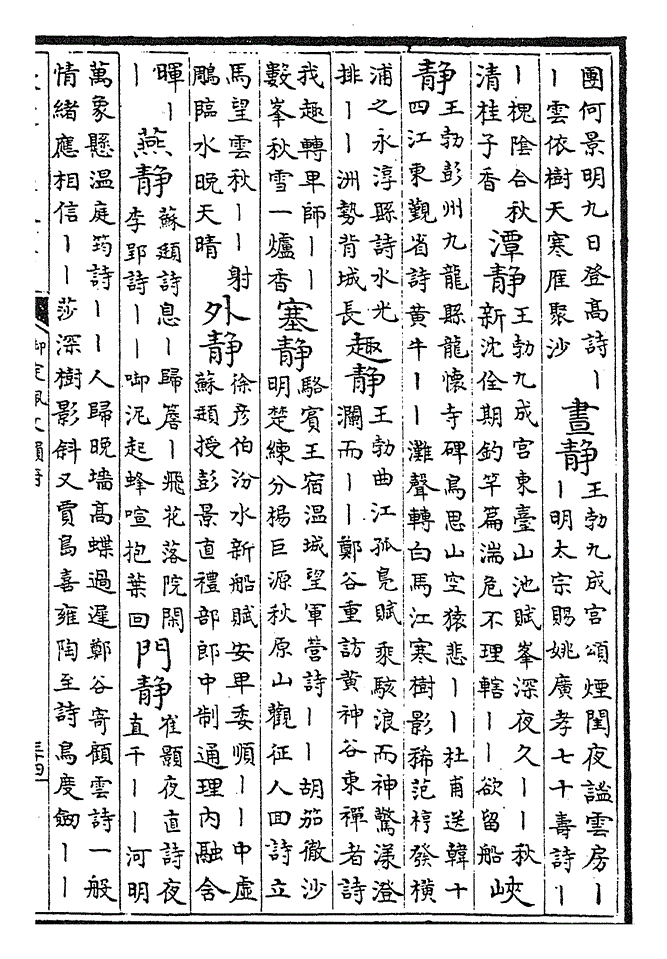 團何景明九日登高詩丨
丨雲依樹天寒雁聚沙
晝靜
王勃九成宮頌煙閨夜謐雲房丨
丨明太宗賜姚廣孝七十壽詩丨
丨槐陰合秋
清桂子香
潭靜
王勃九成宮東臺山池賦峯深夜久丨丨秋
新沈佺期釣竿篇湍危不理轄丨丨欲留船
峽
靜
王勃彭州九龍縣龍懷寺碑鳥思山空猿悲丨丨杜甫送韓十
四江東覲省詩黃牛丨丨灘聲轉白馬江寒樹影稀范梈發橫
浦之永淳縣詩水光
排丨丨洲勢背城長
趣靜
王勃曲江孤鳧賦乘駭浪而神驚漾澄
瀾而丨丨鄭谷重訪黃神谷東禪者詩
我趣轉卑師丨丨
數峯秋雪一爐香
塞靜
駱賓王宿溫城望軍營詩丨丨胡笳徹沙
明楚練分楊巨源秋原山觀征人回詩立
馬望雲秋丨丨射
鵰臨水晚天晴
外靜
徐彥伯汾水新船賦安卑委順丨丨中虛
蘇頲授彭景直禮部郎中制通理內融含
暉丨
丨
燕靜
蘇頲詩息丨歸簷丨飛花落院閒
李郢詩丨丨啣泥起蜂喧抱葉回
門靜
崔顥夜直詩夜
直千丨丨河明
萬象懸溫庭筠詩丨丨人歸晚墻高蝶過遲鄭谷寄顧雲詩一般
情緒應相信丨丨莎深樹影斜又賈島喜雍陶至詩鳥度劒丨丨
御定佩文韻府